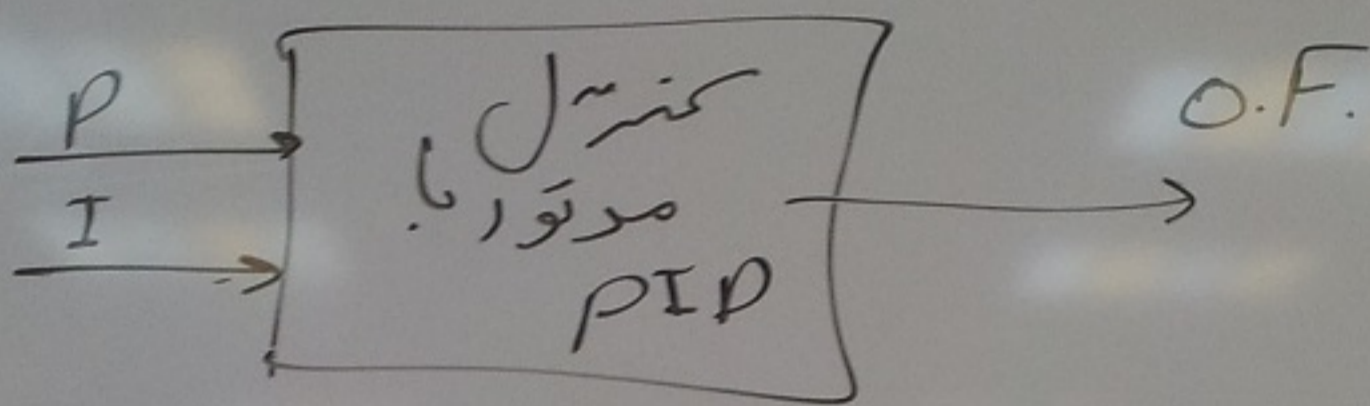 P
I
کنترل
موتور با
PID
O.F.